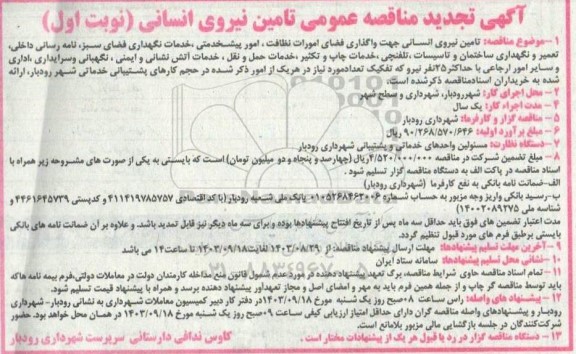 آگهی تجدید مناقصه عمومی تامین نیروی انسانی (نوبت اول)
۱-موضوع مناقصه: تامین نیروی انسانی جهت واگذاری فضای امورات نظافت ، امور پیشخدمتی ،خدمات نگهداری فضای سبز، نامه رسانی داخلی،
تعمیر و نگهداری ساختمان و تاسیسات ،تلفنچی ،خدمات چاپ و تکثیر ،خدمات حمل و نقل ، خدمات آتش نشانی و ایمنی ، نگهبانی وسرایداری ،اداری
و سایر امور ارجاعی با حداکثر ۲۵نفر نیرو که تفکیک تعدادمورد نیاز در هریک از امور ذکر شده در حجم کارهای پشتیبانی خدماتی شهر رودبار، ارائه
شده به خریداران اسنادمناقصه ذکرشده است.
۲- محل اجرای کار: شهررودبار، شهرداری و سطح شهر
۳- مدت اجرای کار: یک سال
۴- مناقصه گزار و کارفرما: شهرداری رودبار
۶- مبلغ برآورد اولیه: ۹۰/۲۶۸/۵۷۰/۶۴۶ ریال
۷-دستگاه نظارت: مسئولین واحدهای خدماتی و پشتیبانی شهرداری رودبار
۸- مبلغ تضمین شرکت در مناقصه ۴/۵۲۰/۰۰۰/۰۰۰ریال (چهارصد و پنجاه و دو میلیون تومان) است که بایستی به یکی از صورت های مشروحه زیر همراه با
اسناد مناقصه در پاکت الف به دستگاه مناقصه گزار تسلیم شود .
الف-ضمانت نامه بانکی به نفع کارفرما (شهرداری رودبار)
ب-رسید بانکی واریز وجه مزبور به حساب شماره ۰۱۰۵۲۶۸۴۶۳۰۰۶ بانک ملی شعبه رودبار (با کد اقتصادی ۴۱۱۴۱۹۷۸۵۷۵۷ و کدپستی ۴۴۶۱۶۴۵۷۳۹ و
شناسه ملی ۱۴۰۰۲۰۸۹۲۷۵)
مدت اعتبار تضمین های فوق باید حداقل سه ماه پس از تاریخ افتتاح پیشنهادها بوده و برای سه ماه دیگر نیز قابل تمدید باشد. و علاوه بر آن ضمانت نامه های بانکی
بایستی برطبق فرم های مورد قبول تنظیم گردد.
۹-آخرین مهلت تسلیم پیشنهادها: مهلت ارسال پیشنهاد مناقصه: از ۱۴۰۳/۰۸/۲۹ لغایت۱۴۰۳/۰۹/۱۸ تا ساعت۱۴ می باشد
۱۰-نشانی محل تسلیم پیشنهادها: سامانه ستاد ایران
۱۱- تمام اسناد مناقصه حاوی شرایط مناقصه، برگ تعهد پیشنهاددهنده در مورد عدم شمول قانون منع مداخله کارمندان دولت در معاملات دولتی،فرم بیمه نامه هاکه
باید توسط مناقصه گر چاپ و از جمله همین فرم باید به مهر و امضای اصل و مجاز تعهدآور پیشنهاد دهنده برسد و همراه با پیشنهاد قیمت تسلیم شود.
۱۲- پیشنهاد های واصله: راس ساعت ۰۸صبح روز یک شنبه مورخ ۱۴۰۳/۰۹/۱۸در دفتر کار دبیر کمیسیون معاملات شهرداری به نشانی رودبار- شهرداری
رودبار و پیشنهادهای واصله مناقصه گران دارای حداقل امتیاز ارزیابی کیفی ساعت ۰۹صبح روز یک شنبه مورخ ۱۴۰۳/۰۹/۱۸ در همان محل خواهد بود. حضور
شرکت‌کنندگان در جلسه بازگشایی مالی مزبور بلامانع است.
۱۳- دستگاه مناقصه گزار در رد یا قبول هر یک از پیشنهادات مختار است .
کاوس ندافی دارستانی سرپرست شهرداری رودبار